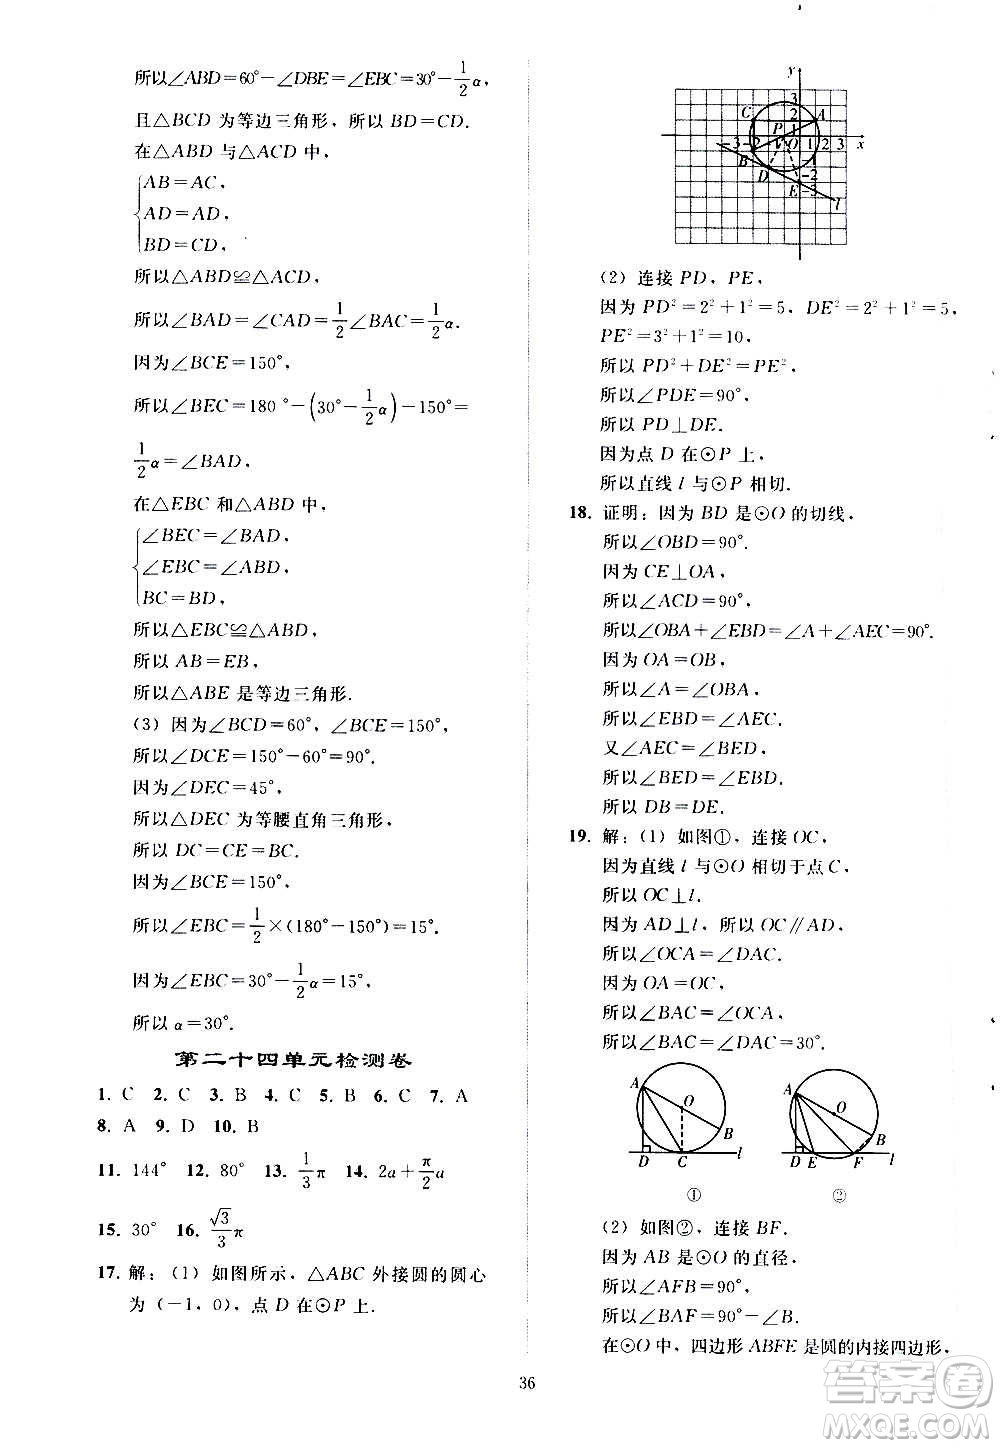 所以∠ABD=60°-∠DBE=∠EBC=30°-1/2α,
且△BCD 为等边三角形,所以 BD=CD.
在△ABD 与△ACD 中,
AB=AC,
AD=AD,
BD=CD,
所以△ABD≌△ACD,
所以∠BAD=∠CAD=1/2∠BAC=1/2α.
因为∠BCE=150°,
所以∠BEC=180°-(30°-1/2α)-150°=
1/2α=∠BAD,
在△EBC 和△ABD 中,
∠BEC=∠BAD,
∠EBC=∠ABD,
BC=BD,
所以△EBC≌△ABD,
所以 AB=EB,
所以△ABE 是等边三角形.
(3) 因为∠BCD=60°,∠BCE=150°,
所以∠DCE=150°-60°=90°.
因为∠DEC=45°,
所以△DEC 为等腰直角三角形,
所以 DC=CE=BC.
因为∠BCE=150°,
所以∠EBC=1/2×(180°-150°)=15°.
因为∠EBC=30°-1/2α=15°,
所以 α=30°.
第二十四单元检测卷
1. C 2. C 3. B 4. C 5. B 6. C 7. A
8. A 9. D 10. B
11. 144° 12. 80° 13. 1/3π 14. 2a+π/2a
15. 30° 16. √3/3π
17. 解:(1) 如图所示,△ABC 外接圆的圆心
为(-1,0),点 D 在⊙P 上.
y
3
C 2 A
P 1
-3 -2 O 1 2 3 x
B -1
D -2
E -3
l
(2) 连接 PD,PE,
因为 PD²=2²+1²=5,DE²=2²+1²=5,
PE²=3²+1²=10,
所以 PD²+DE²=PE²,
所以∠PDE=90°,
所以 PD⊥DE.
因为点 D 在⊙P 上,
所以直线 l 与⊙P 相切.
18. 证明:因为 BD 是⊙O 的切线,
所以∠OBD=90°.
因为 CE⊥OA,
所以∠ACD=90°,
所以∠OBA+∠EBD=∠A+∠AEC=90°.
因为 OA=OB,
所以∠A=∠OBA,
所以∠EBD=∠AEC.
又∠AEC=∠BED,
所以∠BED=∠EBD.
所以 DB=DE.
19. 解:(1) 如图①,连接 OC,
因为直线 l 与⊙O 相切于点 C,
所以 OC⊥l.
因为 AD⊥l,所以 OC∥AD,
所以∠OCA=∠DAC.
因为 OA=OC,
所以∠BAC=∠OCA,
所以∠BAC=∠DAC=30°.
A O B D C l
A O B D E F l
① ②
(2) 如图②,连接 BF.
因为 AB 是⊙O 的直径,
所以∠AFB=90°,
所以∠BAF=90°-∠B.
在⊙O 中,四边形 ABFE 是圆的内接四边形,
36
答案圈
MXQE.COM